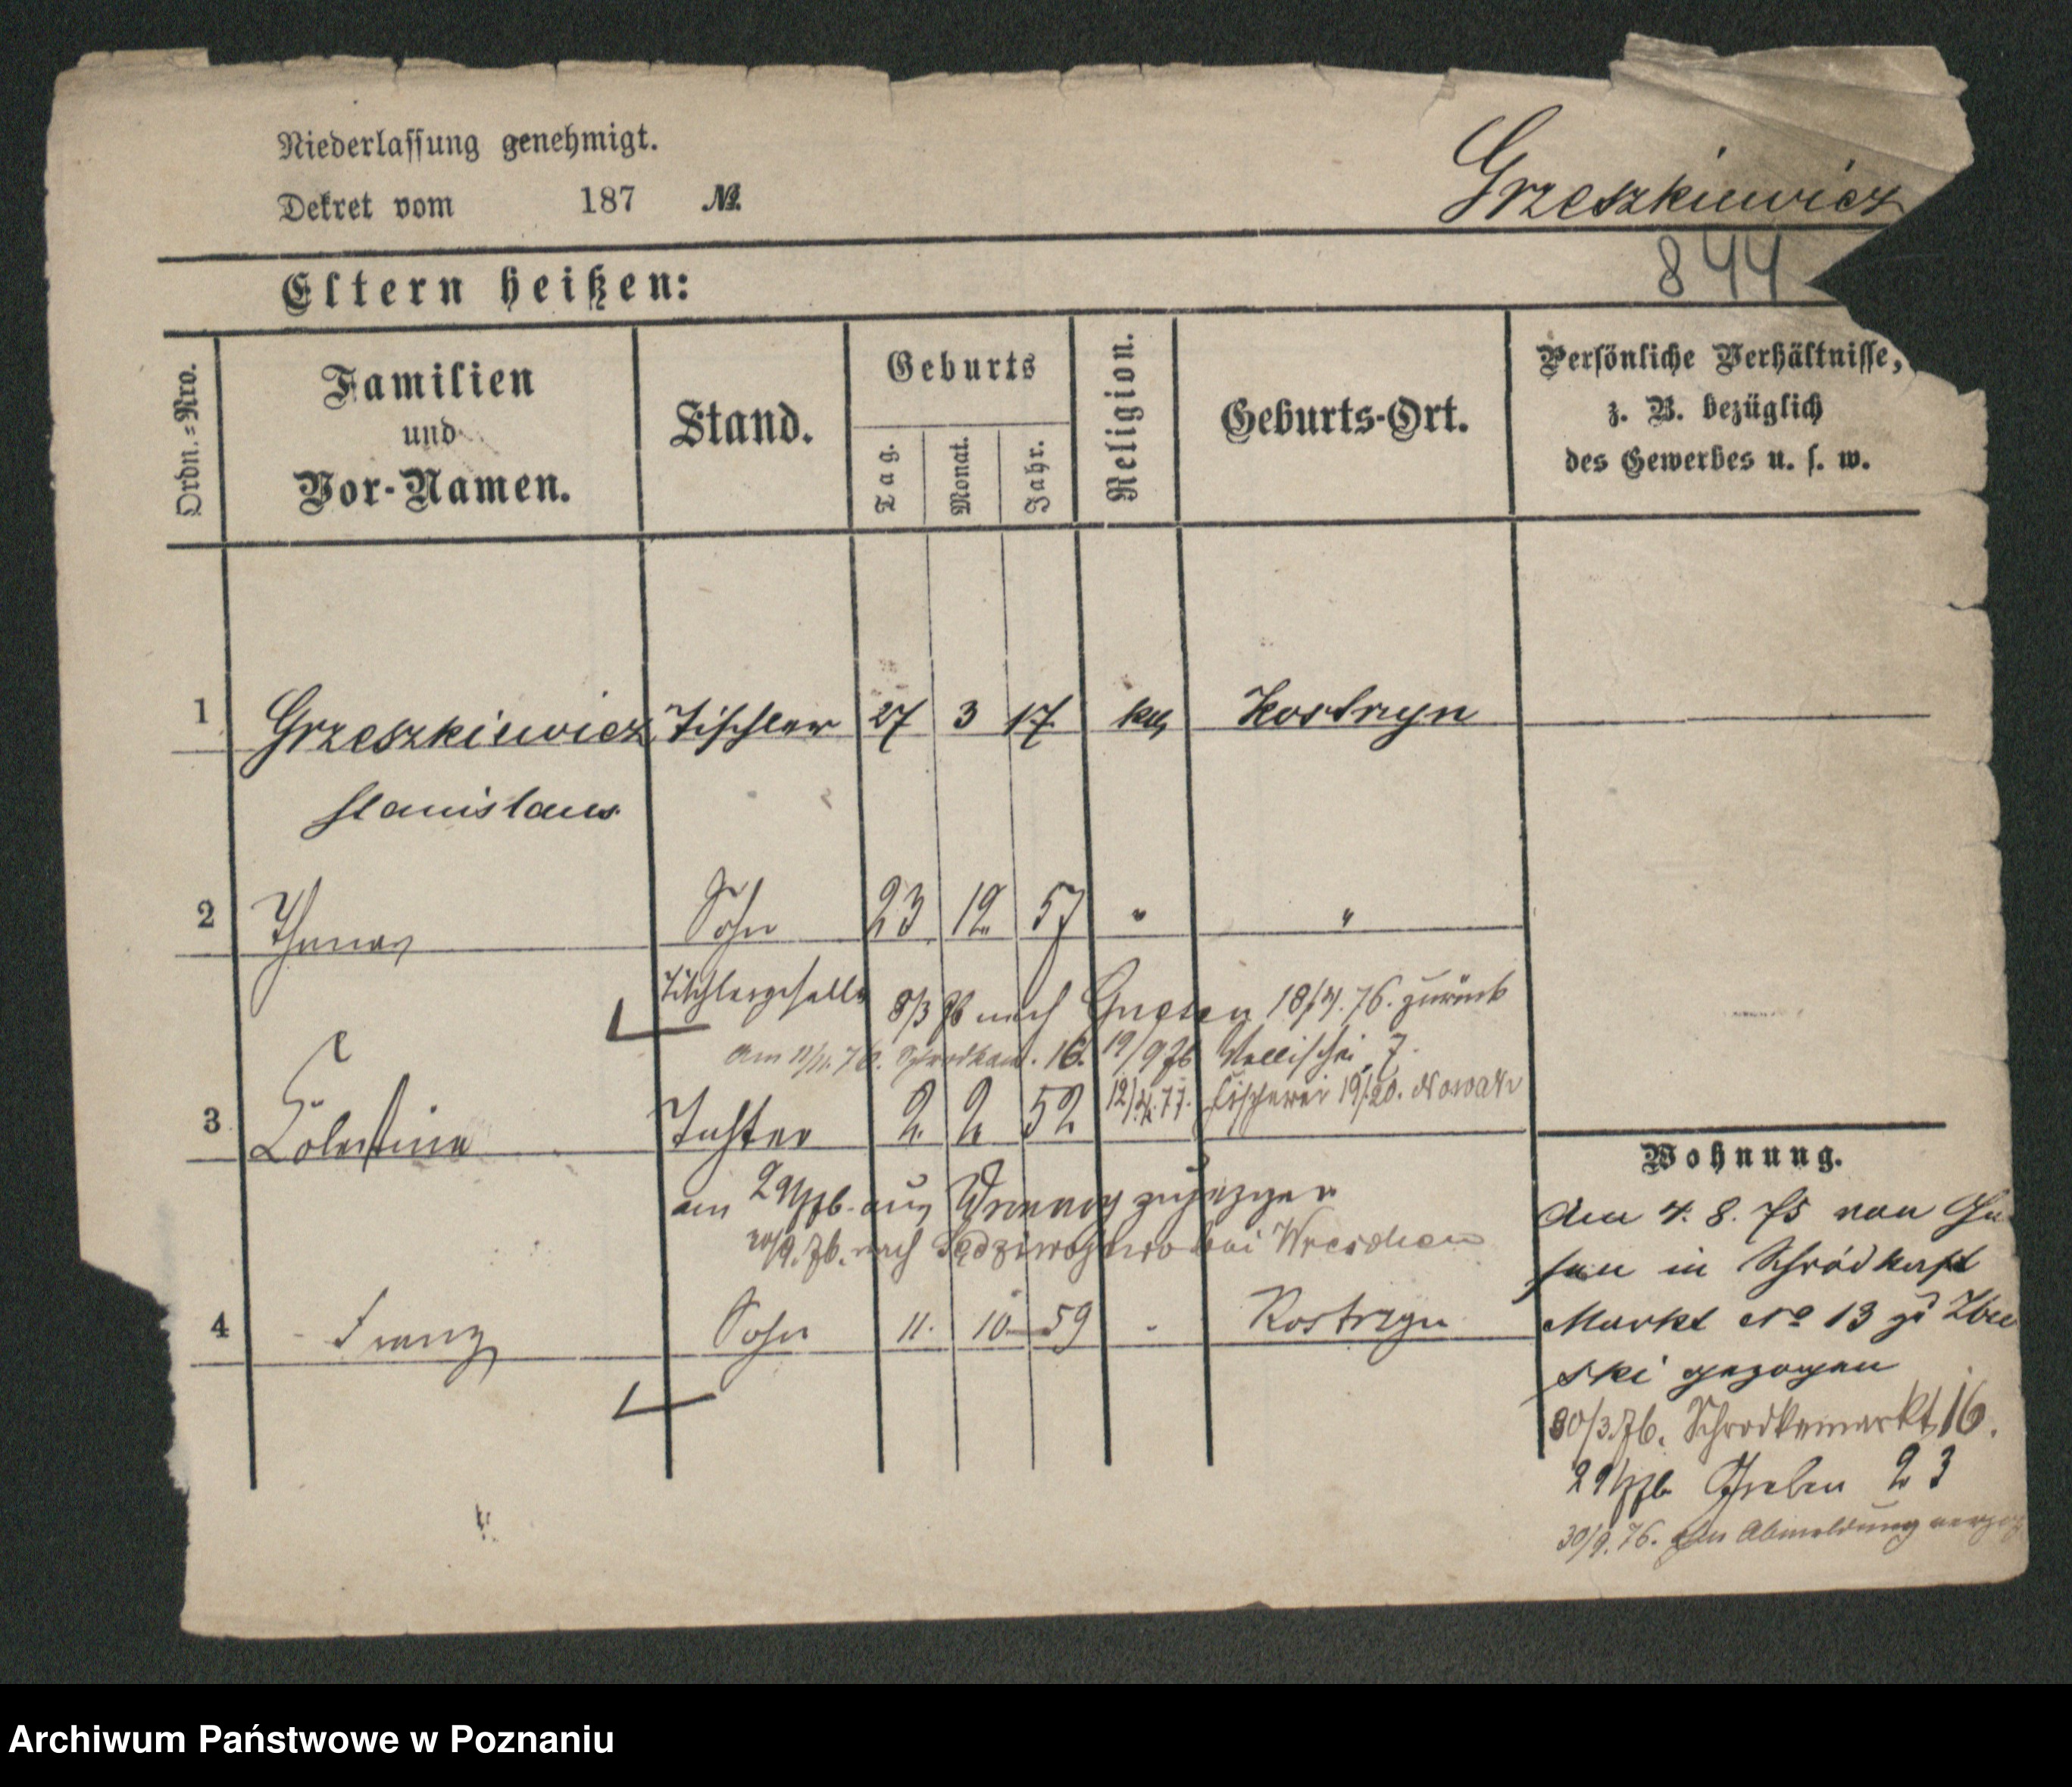 Niederlassung genehmigt.
Dekret vom 187 №.
Grzeszkiewicz
844
Eltern heißen:
Ordn.-Nro.
Familien
und
Vor-Namen.
Stand.
Geburts
Tag.
Monat.
Jahr.
Religion.
Geburts-Ort.
Persönliche Verhältnisse,
z. B. bezüglich
des Gewerbes u. s. w.
1 Grzeszkiewicz Tischler 27 3 17 kth Kostrzyn
Stanislaus
2 Thomas Sohn 23 12 57 " "
Tischlergeselle 8/3 76 nach Gnesen 18/4. 76. zurück
am 11/11. 76. 16. 19/9 76 Wallischei 7.
3 Tochter 2. 2. 52 12/4. 77. Fischerei 19/20. Nowak
am 29/4 76. aus zugezogen
20/9. 76. nach bei Wreschen
4 Franz Sohn 11. 10 59 - Kostrzyn
Wohnung.
Am 4. 8. 75 von Gne
sen in Schrodka
Markt No 13 zu
ski gezogen
30/3. 76. Schrodkamarkt 16.
29/4 76 Graben 23
30/9. 76. ohne Abmeldung verzog
Archiwum Państwowe w Poznaniu